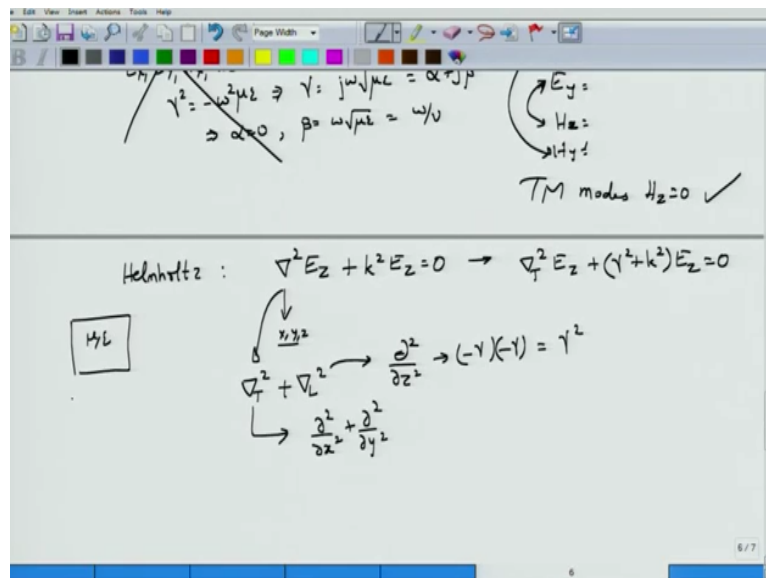 Edit View Insert Actions Tools Help
Page Width
B I
γ² = -ω²με ⇒ γ = jω√με = α+jβ
⇒ α=0, β= ω√με = ω/υ
Ey =
Hx =
Hy =
TM modes Hz=0 ✓
Helmholtz : ∇²Ez + k²Ez=0 → ∇T²Ez + (γ²+k²)Ez=0
μ,ε
x,y,z
∇T² + ∇L² → ∂²/∂z² → (-γ)(-γ) = γ²
→ ∂²/∂x² + ∂²/∂y²
6/7
6